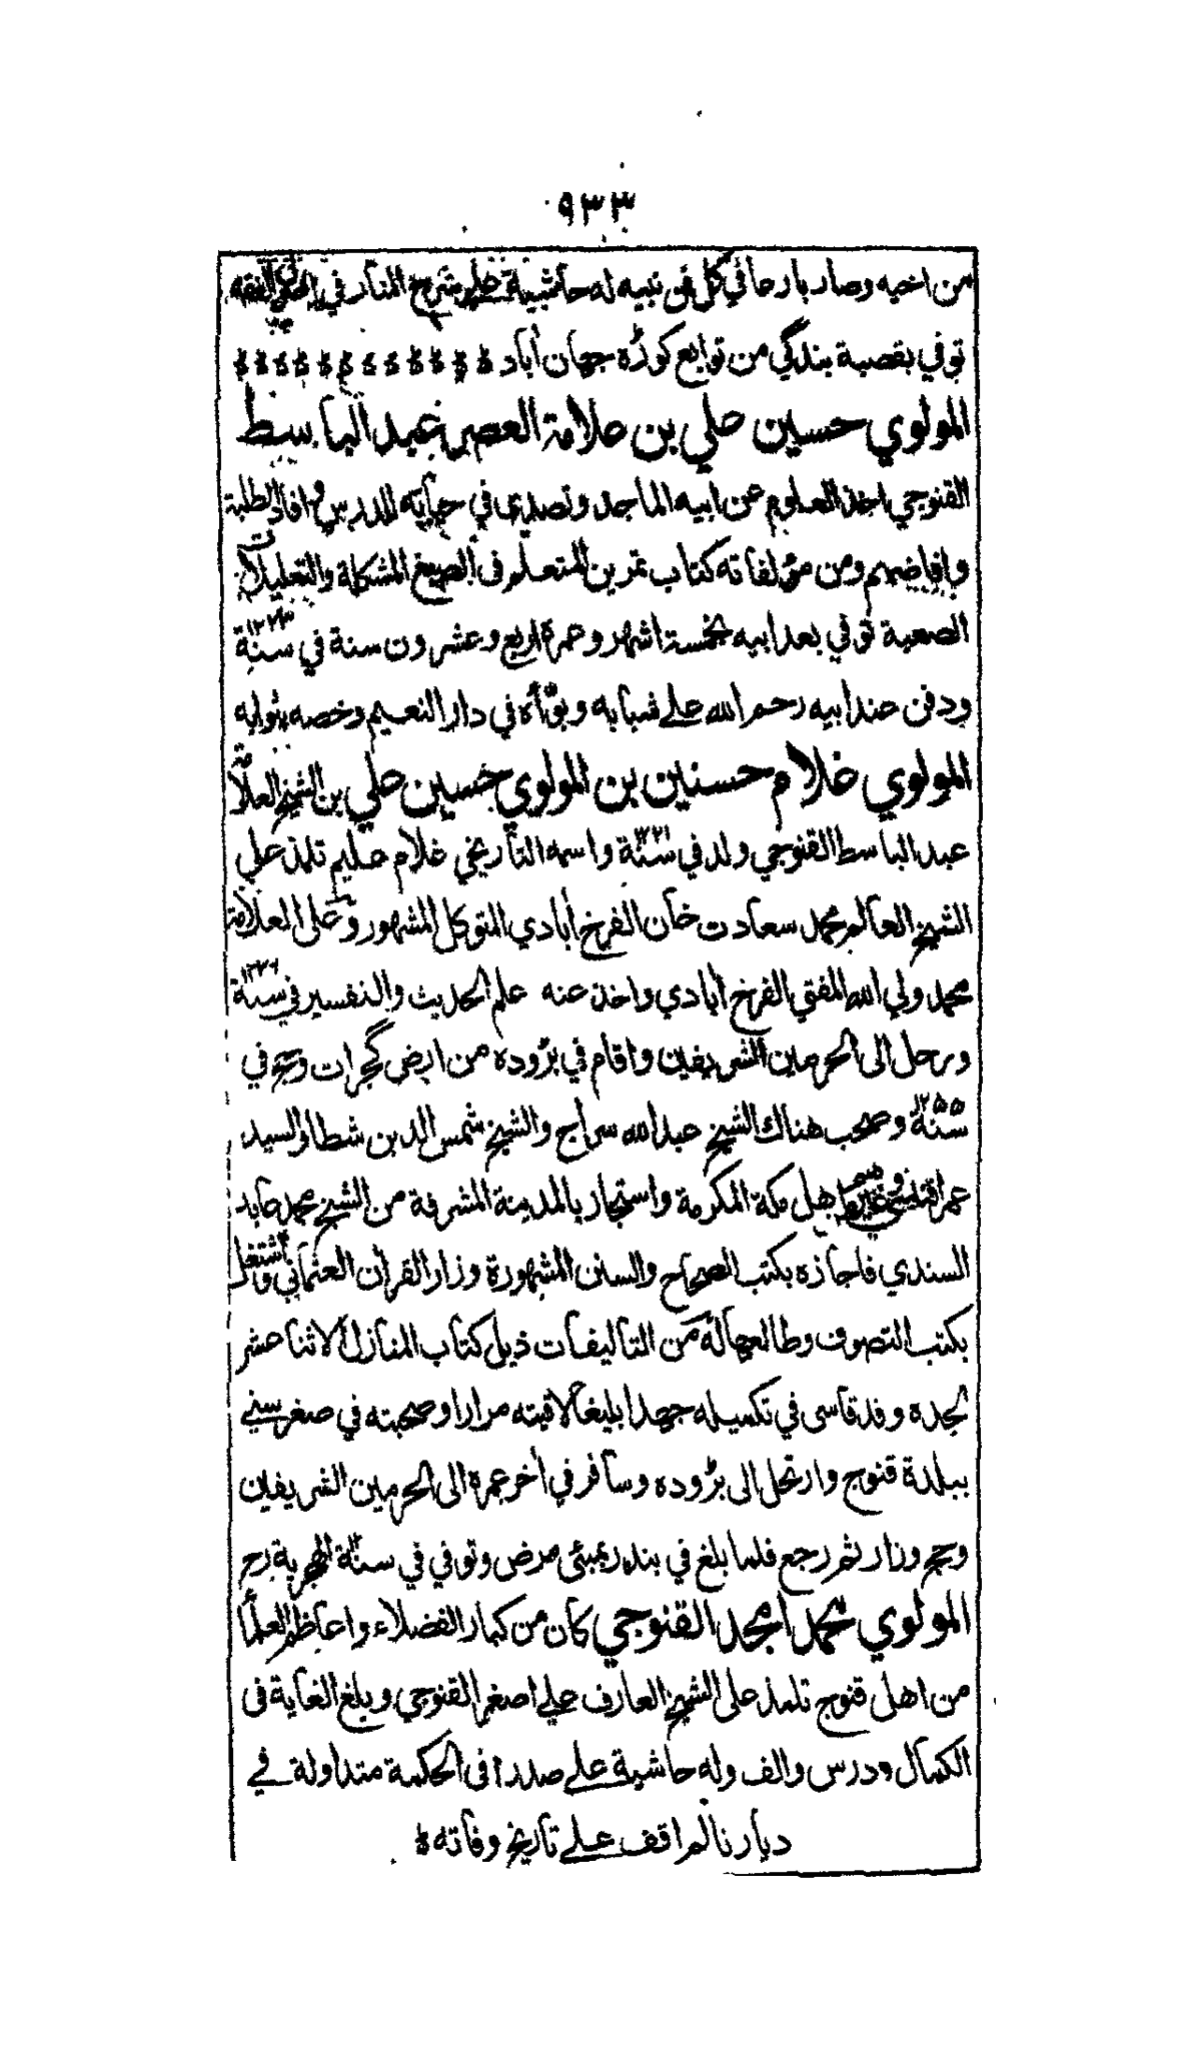 ٩٣٣
من اخيه وصار بارعا في كل فن نبيه له حاشية على شرح المنار في اصول الفقه
توفي بقصبة بندگي من توابع كوڑه جهان آباد
المولوي حسين علي بن علامة العصر عبد الباسط
القنوجي اخذ العلوم عن ابيه الماجد وتصدى في حياته للدرس وافاد الطلبة
وافاضهم ومن مؤلفاته كتاب تمرين المتعلم في الصيغ المشكلة والتعليلات
الصعبة توفي بعد ابيه بخمسة اشهر وعمره اربع وعشرون سنة في سنة ١٢٢٣
ودفن عند ابيه رحم الله على شبابه وبوّأه في دار النعيم وخصه بثوابه
المولوي غلام حسنين بن المولوي حسين علي بن الشيخ العلّامة
عبد الباسط القنوجي ولد في سنة ١٢٢١ واسمه التأريخي غلام حليم تلمذ على
الشيخ العالم محمد سعادت خان الفرخ آبادي المتوكل المشهور وعلى العلامة
محمد ولي الله المفتي الفرخ آبادي واخذ عنه علم الحديث والتفسير في سنة ١٢٣٦
ورحل الى الحرمين الشريفين واقام في بڑوده من ارض گجرات وحج في
سنة ١٢٥٥ وصحب هناك الشيخ عبد الله سراج والشيخ شمس الدين شطا والسيد
عمر افندي وغيرهم من اهل مكة المكرمة واستجاز بالمدينة المشرفة من الشيخ محمد عابد
السندي فاجازه بكتب الصحاح والسنن المشهورة وزار القرآن العثماني واشتغل
بكتب التصوف وطالعها له من التاليفات ذيل كتاب المنازل الاثنا عشر
لجده وقد قاسى في تكميله جهدا بليغا لاقيته مرارا وصحبته في صغر سني
ببلدة قنوج وارتحل الى بڑوده وسافر في آخر عمره الى الحرمين الشريفين
وحج وزار ثم رجع فلما بلغ في بندر بمبئي مرض وتوفي في سنة الهجرية رح
المولوي محمد امجد القنوجي كان من كبار الفضلاء واعاظم العلماء
من اهل قنوج تلمذ على الشيخ العارف علي اصغر القنوجي وبلغ الغاية في
الكمال ودرس والف وله حاشية على صدرا في الحكمة متداولة في
ديارنا لم اقف على تاريخ وفاته